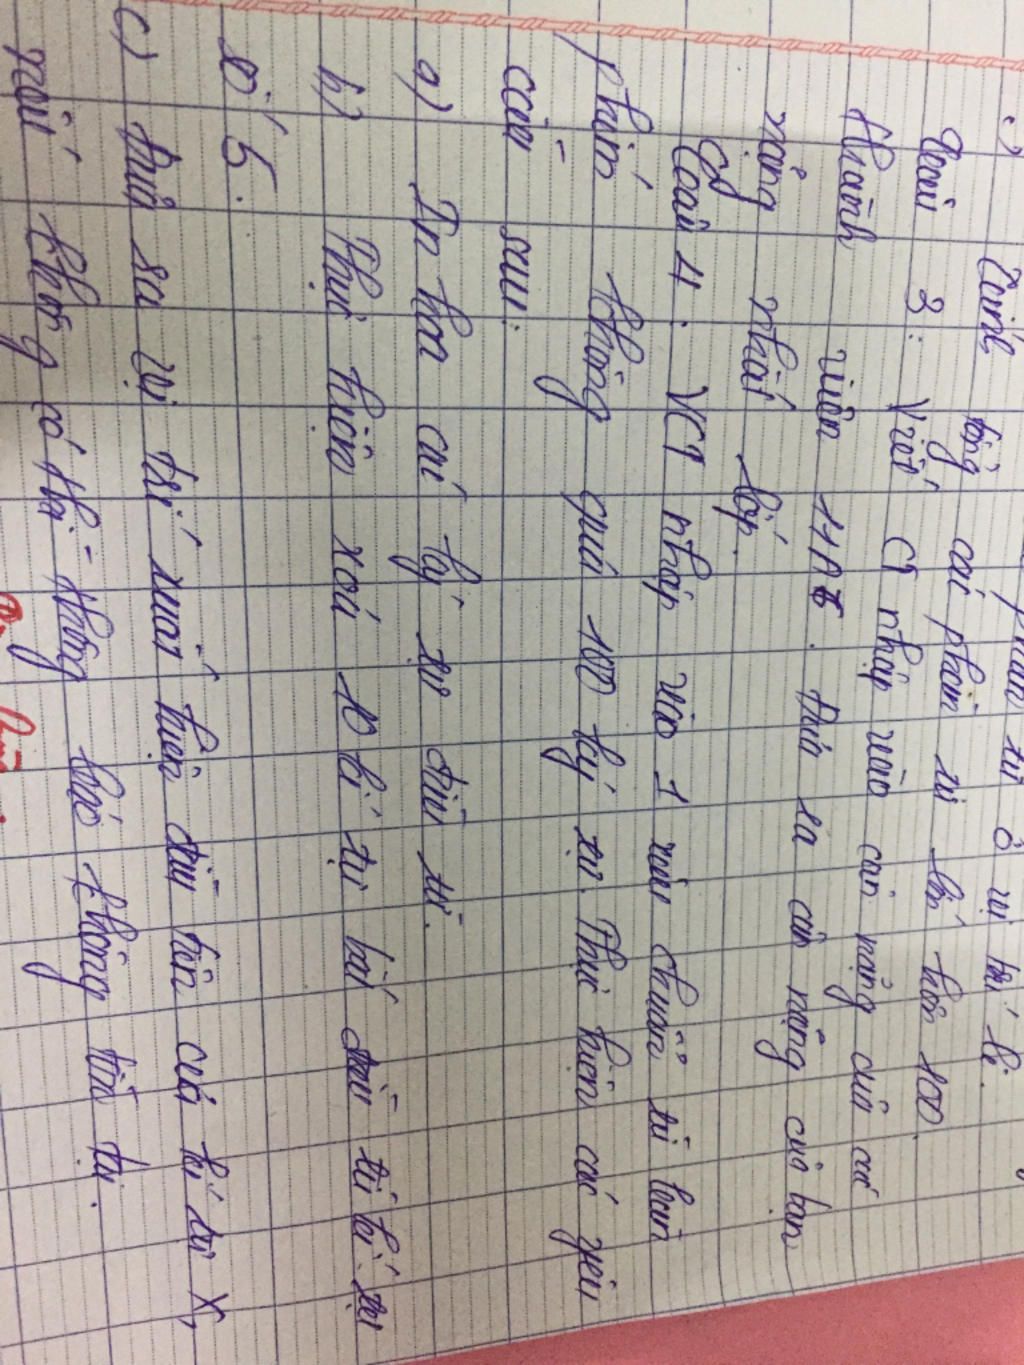 phần tử ở vị trí lẻ.
c) Tính tổng các phần tử lớn hơn 100.
Bài 3: Viết CT nhập vào cân nặng của các
thành viên 11A5. Đưa ra cân nặng của bạn
nặng nhất lớp.
Bài 4: VCT nhập vào 1 xâu chuẩn từ bàn
phím không quá 100 ký tự. Thực hiện các yêu
cầu sau:
a) In hoa các ký tự đầu từ.
b) Thực hiện xoá 10 kí tự bắt đầu từ kí tự
số 5.
c) Đưa ra vị trí xuất hiện đầu tiên của kí tự X,
nếu không có thì thông báo không tồn tại.